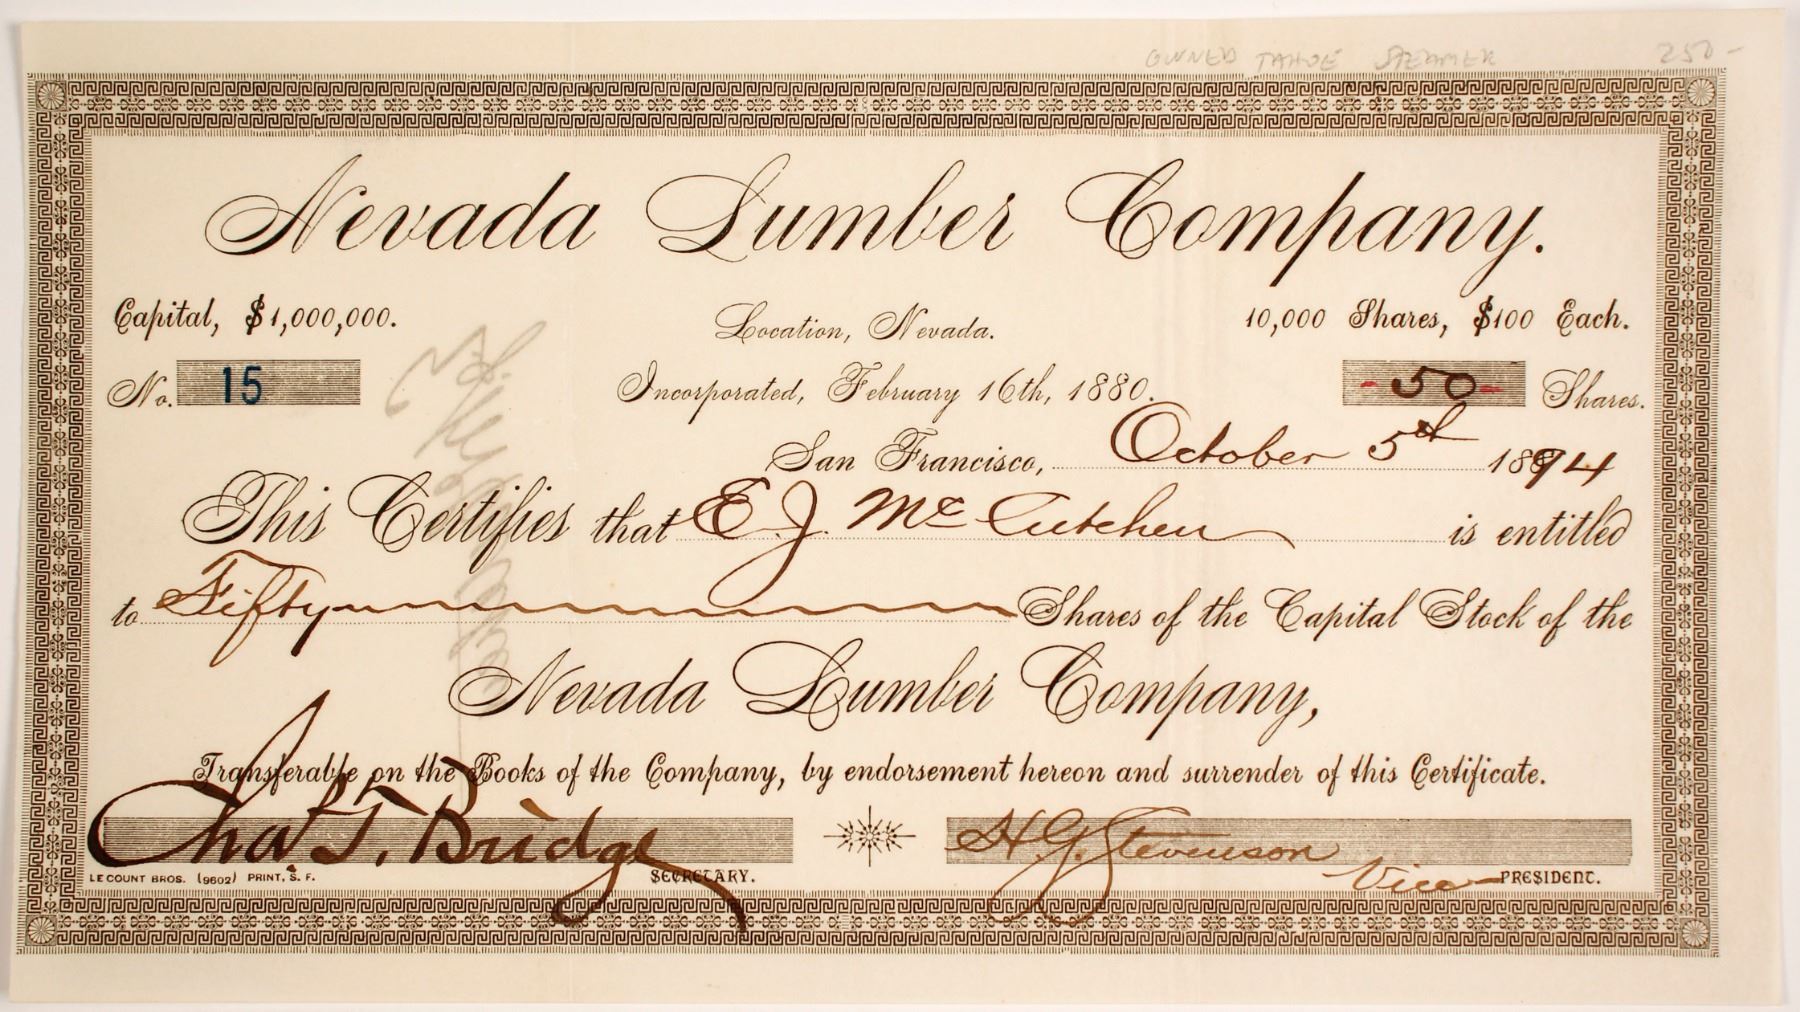 OWNED TAHOE STEAMER 250-
Nevada Lumber Company.
Capital, $1,000,000. Location, Nevada. 10,000 Shares, $100 Each.
No. 15 Incorporated, February 16th, 1880. -50- Shares.
San Francisco, October 5th 1894
This Certifies that E. J. McCutchen is entitled
to Fifty Shares of the Capital Stock of the
Nevada Lumber Company,
Transferable on the Books of the Company, by endorsement hereon and surrender of this Certificate.
Chas. T. Bridge H. G. Stevenson
LE COUNT BROS. (9602) PRINT, S. F. SECRETARY. Vice PRESIDENT.